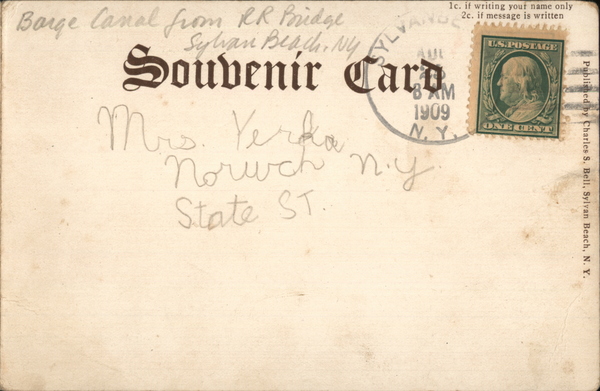 1c. if writing your name only
2c. if message is written
Barge Canal from RR Bridge
Sylvan Beach, NY
Souvenir Card
SYLVAN BE
AUG
8 AM
1909
N. Y.
U.S. POSTAGE
ONE CENT
Mrs. Yerka
Norwch N.Y.
State St.
Published by Charles S. Bell, Sylvan Beach, N. Y.